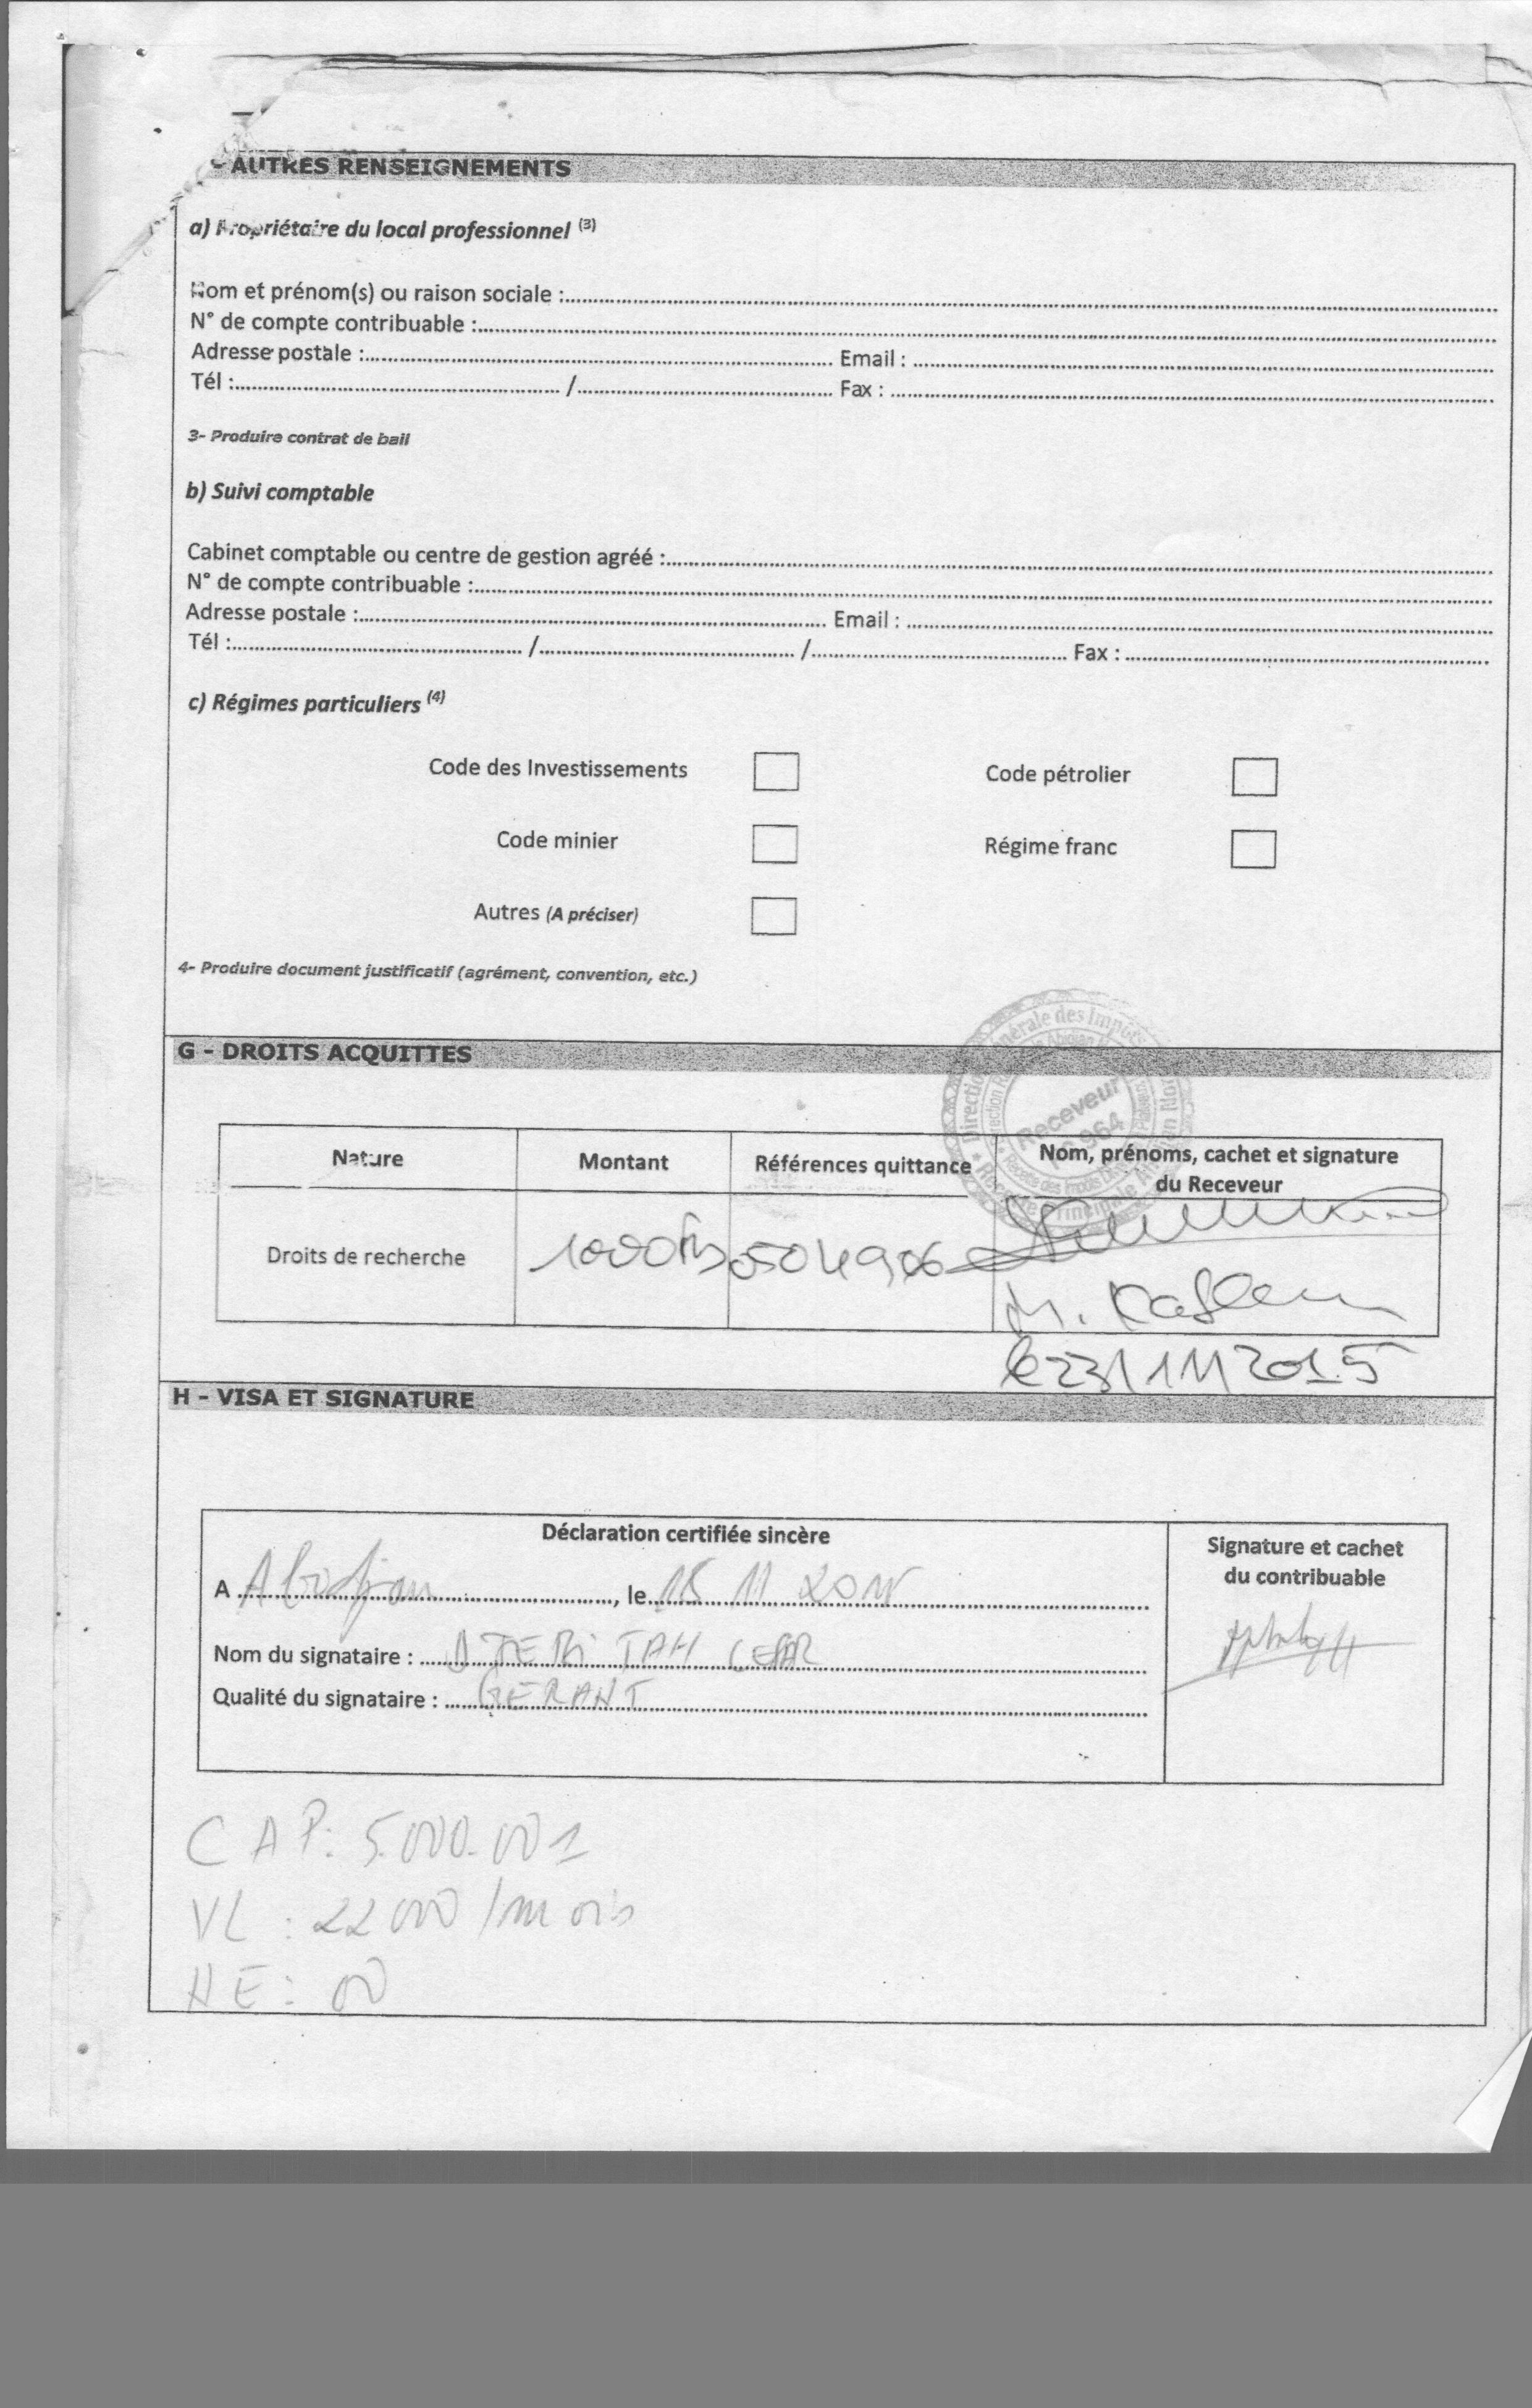 - AUTRES RENSEIGNEMENTS
a) Propriétaire du local professionnel (3)
Nom et prénom(s) ou raison sociale :
N° de compte contribuable :
Adresse postale : Email :
Tél : / Fax :
3- Produire contrat de bail
b) Suivi comptable
Cabinet comptable ou centre de gestion agréé :
N° de compte contribuable :
Adresse postale : Email :
Tél : / / Fax :
c) Régimes particuliers (4)
Code des Investissements Code pétrolier
Code minier Régime franc
Autres (A préciser)
4- Produire document justificatif (agrément, convention, etc.)
Direction Générale des Impôts
Receveur
964
G - DROITS ACQUITTES
Nature Montant Références quittance Nom, prénoms, cachet et signature
du Receveur
Droits de recherche 1000
M.
le 23/11/2015
H - VISA ET SIGNATURE
Déclaration certifiée sincère
Signature et cachet
du contribuable
A Abidjan, le 18 11
Nom du signataire : TAH
Qualité du signataire : GERANT
CAP: 5.000.001
VL : 22000 /mois
HE : 00